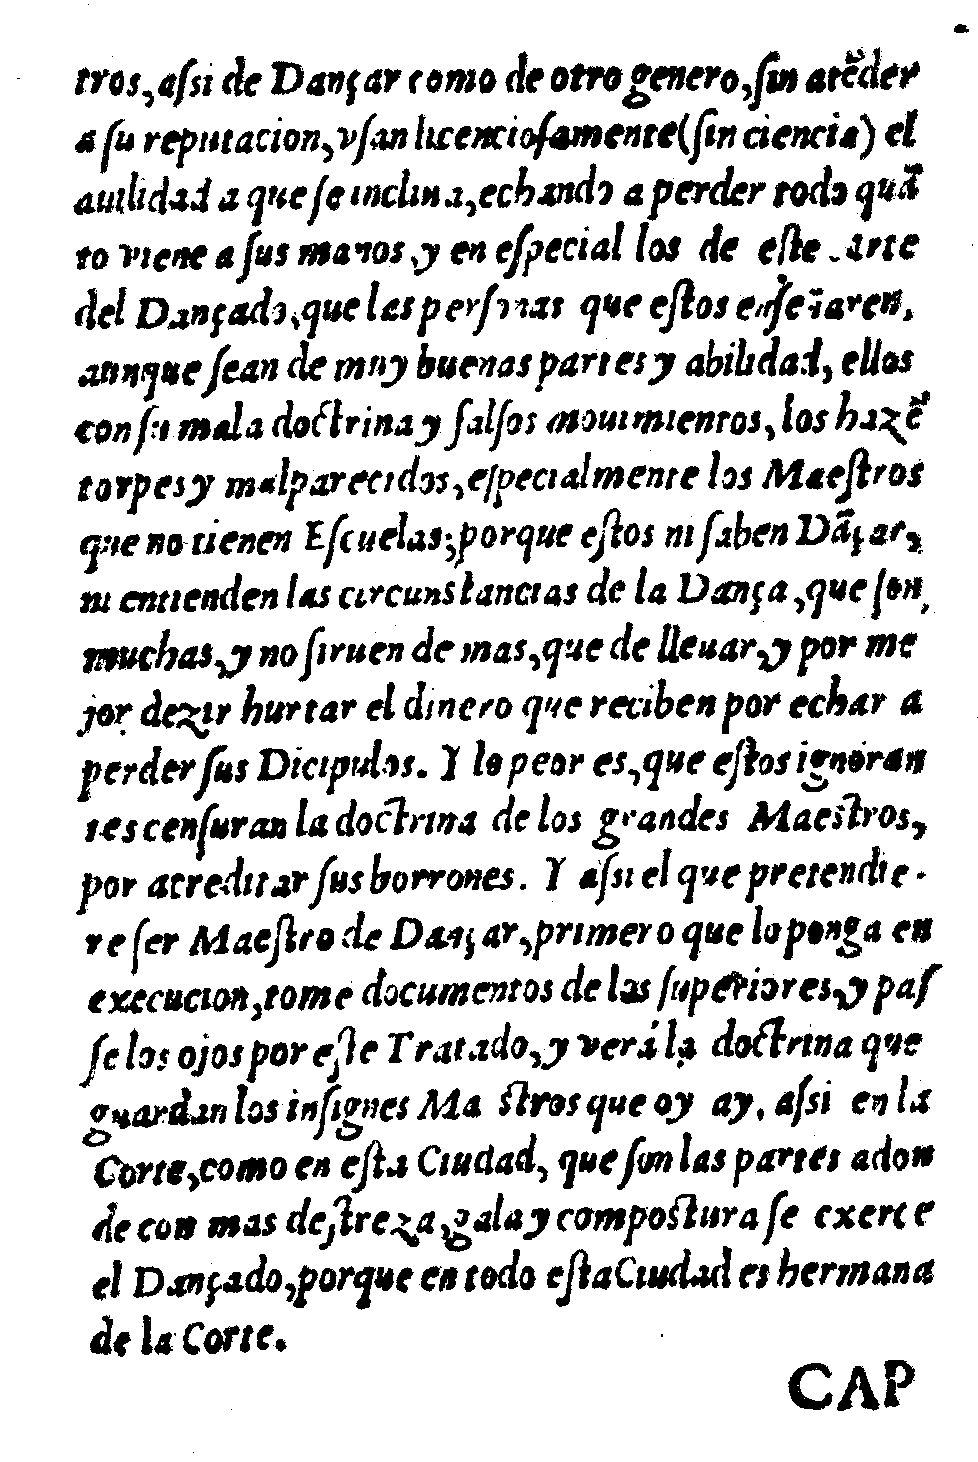 tros, aſsi de Dançar como de otro genero, ſin atẽder
a ſu reputacion, vſan licencioſamente (ſin ciencia) el
auilidad a que ſe inclina, echando a perder todo quã
to viene a ſus manos, y en eſpecial los de eſte arte
del Dançado, que las perſonas que eſtos enſeñaren,
aunque ſean de muy buenas partes y abilidad, ellos
con ſu mala doctrina y falſos mouimientos, los hazẽ
torpes y malparecidos, eſpecialmente los Maeſtros
que no tienen Eſcuelas; porque eſtos ni ſaben Dãçar,
ni entienden las circunstancias de la Dança, que ſon
muchas, y no ſiruen de mas, que de lleuar, y por me
jor dezir hurtar el dinero que reciben por echar a
perder ſus Dicipulos. Y lo peor es, que eſtos ignoran
tes cenſuran la doctrina de los grandes Maeſtros,
por acreditar ſus borrones. Y aſsi el que pretendie-
re ſer Maeſtro de Dançar, primero que lo ponga en
execucion, tome documentos de las ſuperiores, y paſ
ſe los ojos por eſte Tratado, y verá la doctrina que
guardan los inſignes Ma ſtros que oy ay, aſsi en la
Corte, como en eſta Ciudad, que ſon las partes adon
de con mas deſtreza, gala y compoſtura ſe exerce
el Dançado, porque en todo eſta Ciudad es hermana
de la Corte.
CAP